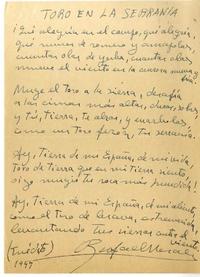 TORO EN LA SERRANÍA
¡Qué alegría en el campo, qué alegría,
qué rumor de romero y amapolas,
cuántas olas de yerba, cuántas olas
mueve el viento en la
Muge el toro a la sierra, desafía
a las cimas más altas,
y tú, tierra, te alzas, y enarbolas,
como un toro feroz, tu serranía.
Ay, tierra de mi España, de mi vida,
toro de tierra que en mi tierra siento,
oigo mugir tu voz más
Ay, tierra de mi España, de mi aliento,
como el toro de
levantando tus sierras contra el
viento.
(Inédito)
1947
Rafael Morales